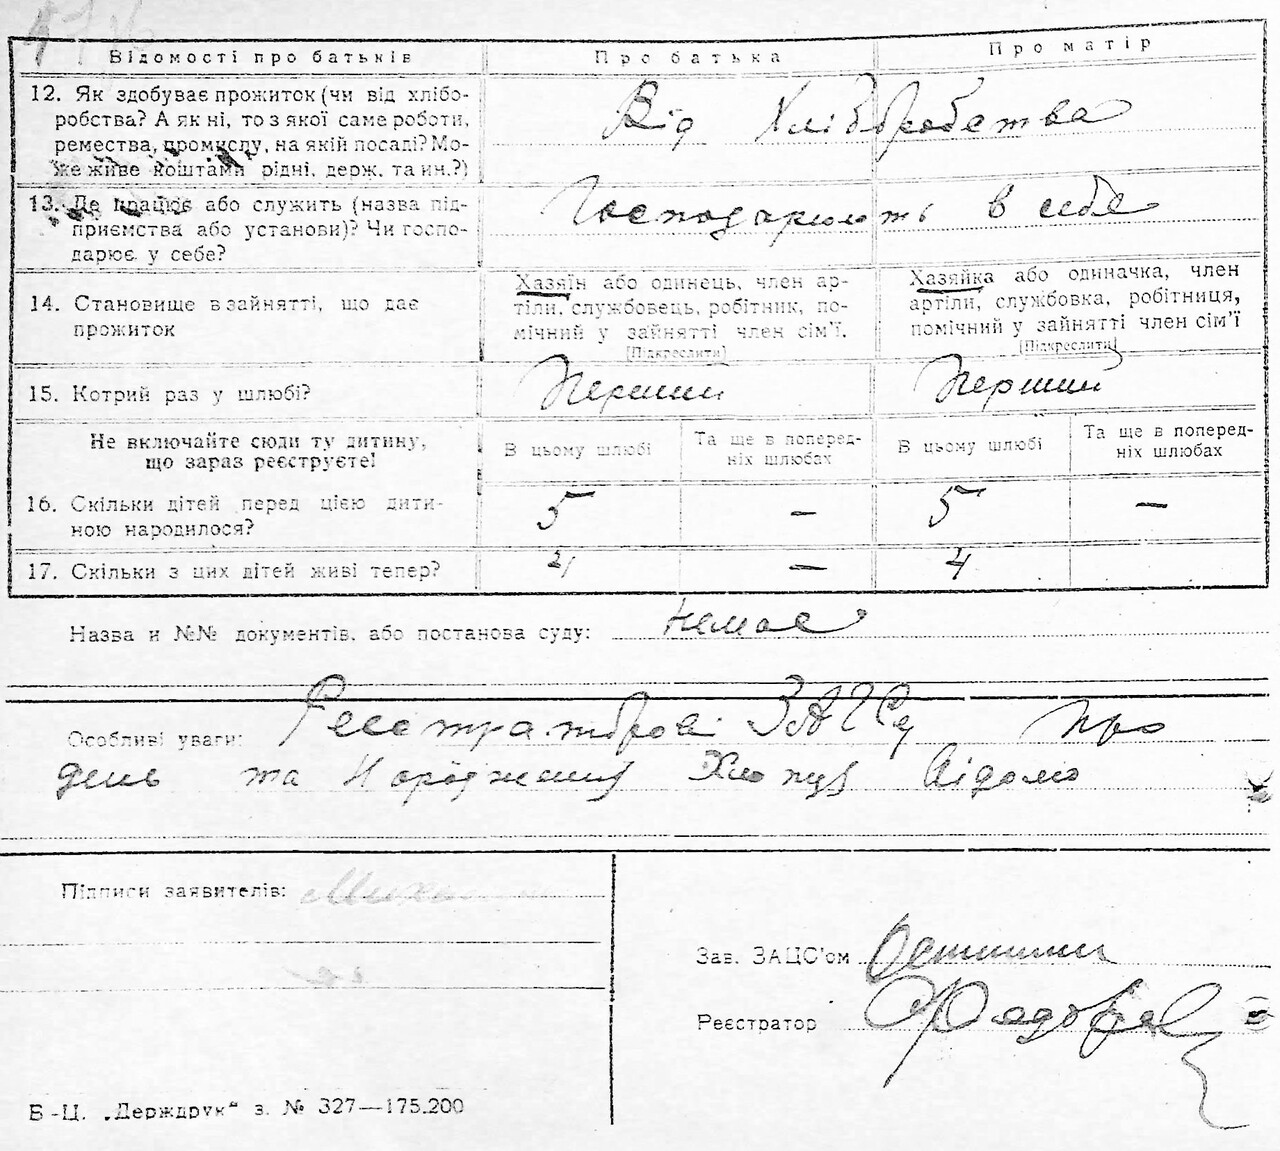 Відомості про батьків
Про батька
Про матір
12. Як здобуває прожиток (чи від хлібо-
робства? А як ні, то з якої саме роботи,
ремества, промислу, на якій посаді? Мо-
же живе коштами рідні, держ. та ин.?)
Від Хліборобства
13. Де працює або служить (назва під-
приємства або установи)? Чи госпо-
дарює у себе?
Господарюють в себе
14. Становище в зайнятті, що дає
прожиток
Хазяїн або одинець, член ар-
тіли, службовець, робітник, по-
мічний у зайнятті член сім’ї.
[Підкреслити]
Хазяйка або одиначка, член
артіли, службовка, робітниця,
помічний у зайнятті член сім’ї
[Підкреслити]
15. Котрий раз у шлюбі?
Перший
Перший
Не включайте сюди ту дитину,
що зараз реєструєте!
В цьому шлюбі
Та ще в поперед-
ніх шлюбах
В цьому шлюбі
Та ще в поперед-
ніх шлюбах
16. Скільки дітей перед цією дити-
ною народилося?
5
—
5
—
17. Скільки з цих дітей живі тепер?
4
—
4
Назва и №№ документів, або постанова суду: немає
Особливі уваги: Реєстраторові ЗАГСу про
день та Народження Хлопця відомо
Підписи заявителів:
Зав. ЗАЦС’ом
Реєстратор
Б-Ц. „Держдрук“ з. № 327—175.200